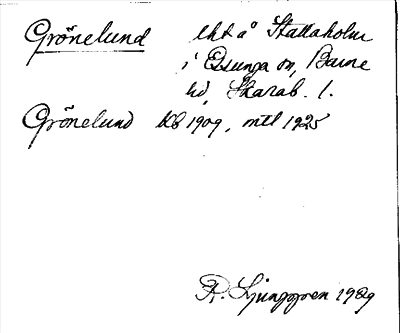 Grönelund lht å Stallaholm
i Essunga sn, Barne
hd, Skarab. l.
Grönelund kb 1909, mtl 1925
R. Ljunggren 1989